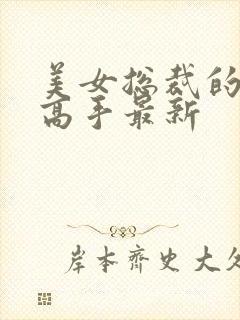 美女总裁的
高手最新
岸本齐史大久